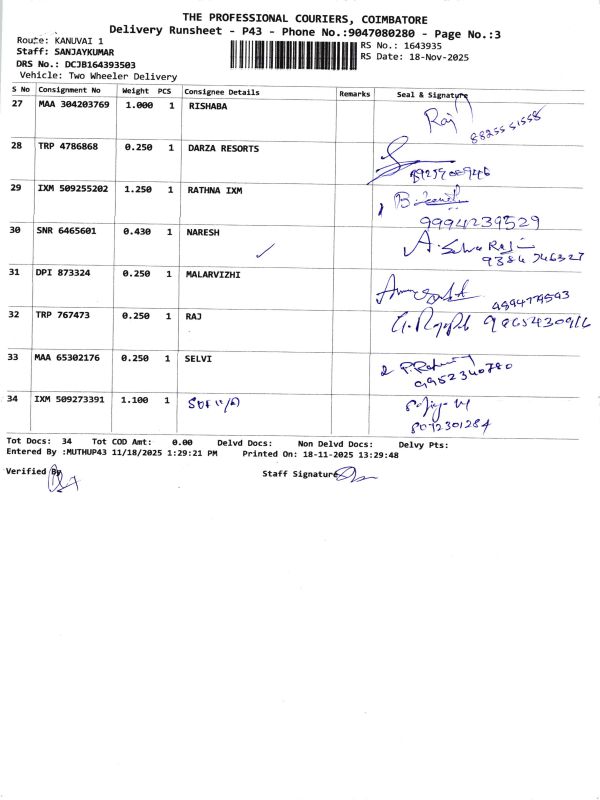 THE PROFESSIONAL COURIERS, COIMBATORE
Delivery Runsheet - P43 - Phone No.:9047080280 - Page No.:3
Route: KANUVAI 1
RS No.: 1643935
Staff: SANJAYKUMAR
RS Date: 18-Nov-2025
DRS No.: DCJB164393503
Vehicle: Two Wheeler Delivery
S No Consignment No Weight PCS Consignee Details Remarks Seal & Signature
27 MAA 304203769 1.000 1 RISHABA Raj
28 TRP 4786868 0.250 1 DARZA RESORTS
29 IXM 509255202 1.250 1 RATHNA IXM
9994239529
30 SNR 6465601 0.430 1 NARESH
9384746327
31 DPI 873324 0.250 1 MALARVIZHI
32 TRP 767473 0.250 1 RAJ
33 MAA 65302176 0.250 1 SELVI
9952340780
34 IXM 509273391 1.100 1
8072301284
Tot Docs: 34 Tot COD Amt: 0.00 Delvd Docs: Non Delvd Docs: Delvy Pts:
Entered By :MUTHUP43 11/18/2025 1:29:21 PM Printed On: 18-11-2025 13:29:48
Verified By Staff Signature